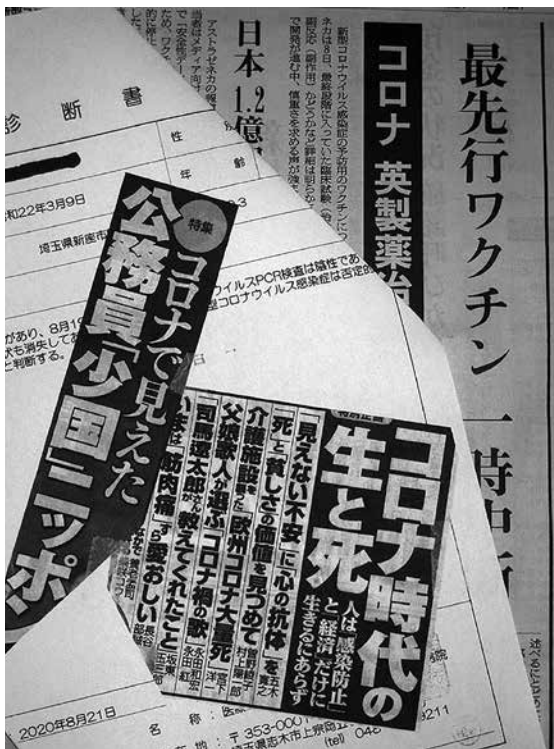 最先行ワクチン 一時中断
コロナ 英製薬治
日本1.2億
新型コロナウイルス感染症の予防用のワクチンにつ
ネカは8日、最終段階に入っていた臨床試験(治
副反応(副作用)かどうかなど詳細は明らか
で開発が進む中、慎重さを求める声が強
アストラゼネカの報
当者はメディア向け
で「安全性デー
ため、ワクチ
的に停止
した
診断書
性
年齢
和22年3月9日
埼玉県新座市
イルスPCR検査は陰性であ
型コロナウイルス感染症は否定的
があり、8月19
状も消失してお
と判断する。
特集
コロナで見えた
公務員「少国」ニッポン
特別企画
コロナ時代の
生と死
人は「感染防止」
と「経済」だけに
生きるにあらず
「見えない不安」に「心の抗体」を 五木寛之
「死」と「貧しさ」の価値を見つめて 曽野綾子
介護施設を襲った「欧州コロナ大量死」 村上陽一郎 宮下洋一
父娘歌人が選ぶ「コロナ禍の歌」 永田和宏 永田紅
「司馬遼太郎さんが教えてくれたこと」
いまは「筋肉痛」すら愛おしい 坂東玉三郎
2020年8月21日
名 称:医療
地:〒353-000
埼玉県志木市上宗岡
(tel) 048
9211
院
述べるにと